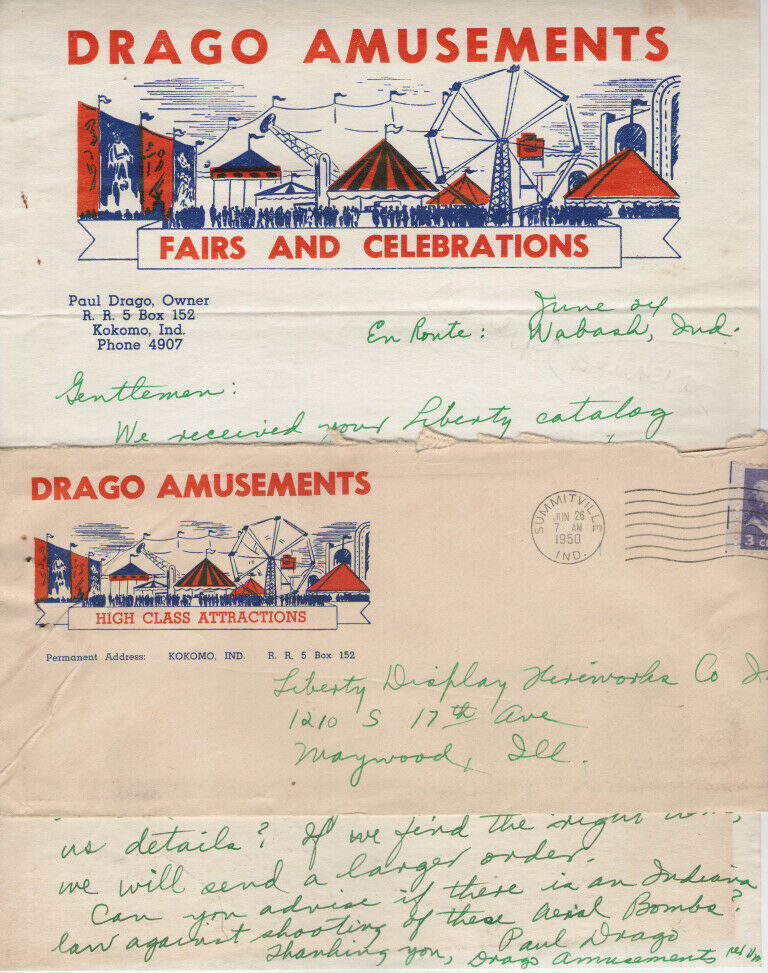 DRAGO AMUSEMENTS
FAIRS AND CELEBRATIONS
Paul Drago, Owner
R. R. 5 Box 152
Kokomo, Ind.
Phone 4907
June 24
En Route: Wabash, Ind.
Gentlemen:
We received your Liberty catalog
DRAGO AMUSEMENTS
HIGH CLASS ATTRACTIONS
Permanent Address: KOKOMO, IND. R. R. 5 Box 152
SUMMITVILLE
JUN 26
7 AM
1950
IND.
3 C
Liberty Display Fireworks Co
1210 S 17th Ave
Maywood, Ill.
us details? If we find the right
we will send a larger order.
Can you advise if there is an Indiana
law against shooting of these Aerial Bombs?
Thanking you, Paul Drago
Drago Amusements